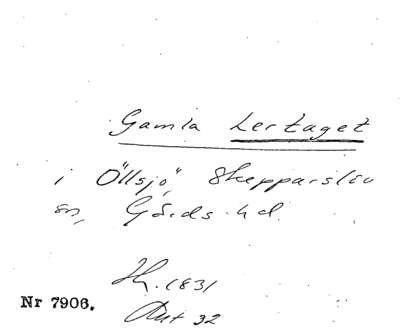 Gamla Lertaget
i Öllsjö, Skepparslöv
sn, Gärds hd.
1831
Nr 7906.
32